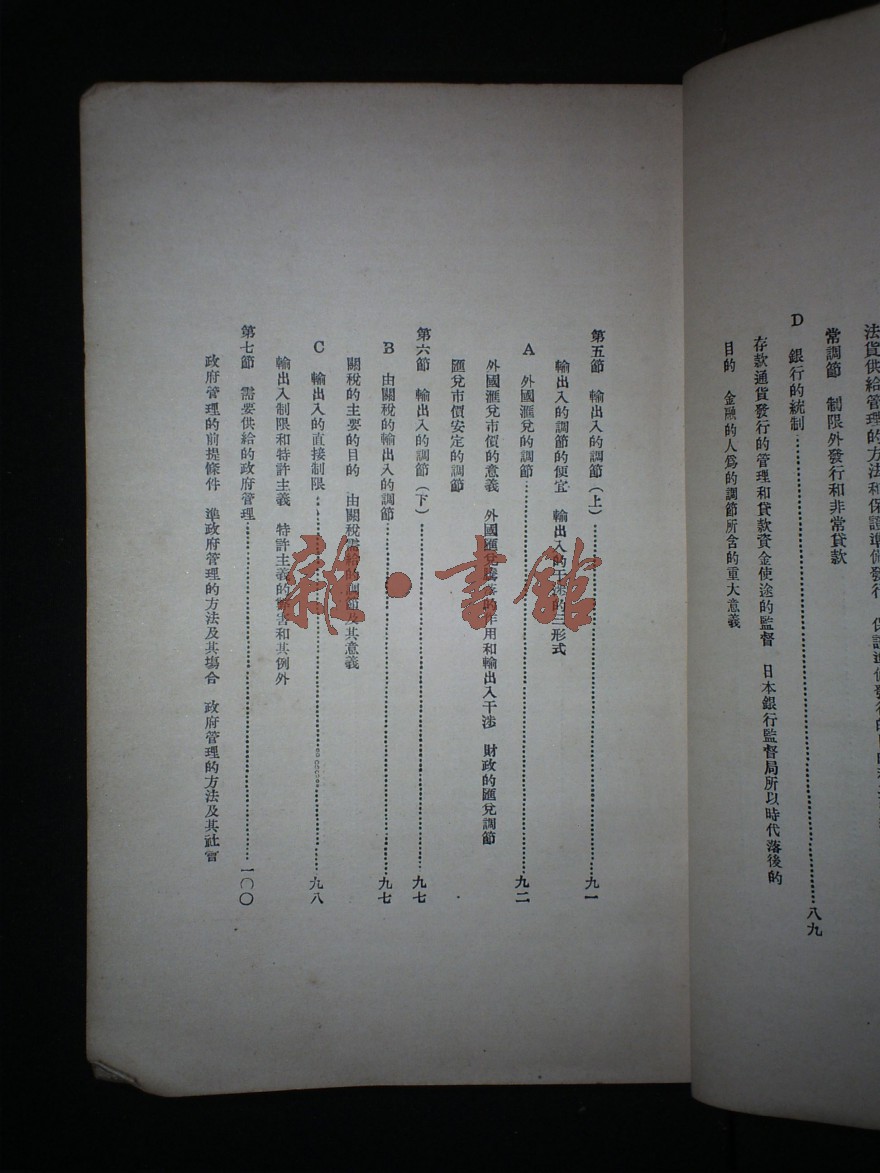 法貨供給管理的方法和保證準備發行
常調節　制限外發行和非常貸款
D　銀行的統制……八九
存款通貨發行的管理和貸款資金使途的監督　日本銀行監督局所以時代落後的
目的　金融的人爲的調節所含的重大意義
第五節　輸出入的調節(上)……九一
輸出入的調節的便宜　輸出入的干涉的三形式
A　外國滙兌的調節……九二
外國滙兌市價的意義　外國匯兌騰落的作用和輸出入干涉　財政的匯兌調節
匯兌市價安定的調節
第六節　輸出入的調節(下)……九七
B　由關稅的輸出入的調節……九七
關稅的主要的目的　由關稅需給的調節及其意義
C　輸出入的直接制限……九八
輸出入制限和特許主義　特許主義的弊害和其例外
第七節　需要供給的政府管理……一〇〇
政府管理的前提條件　準政府管理的方法及其塲合　政府管理的方法及其社會
雜·書館